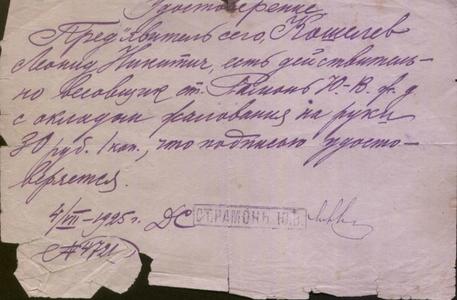 Удостоверение
Предявитель сего, Кошелев
Леонид Никитич, есть действитель-
но весовщик ст. Рамонь Ю-В. ж.д.
с окладом жалования на руки
30 руб. 1 коп., что подписью удосто-
веряется.
4/VII-1925 г. ДС СТ. РАМОНЬ Ю.В.
№ 4721